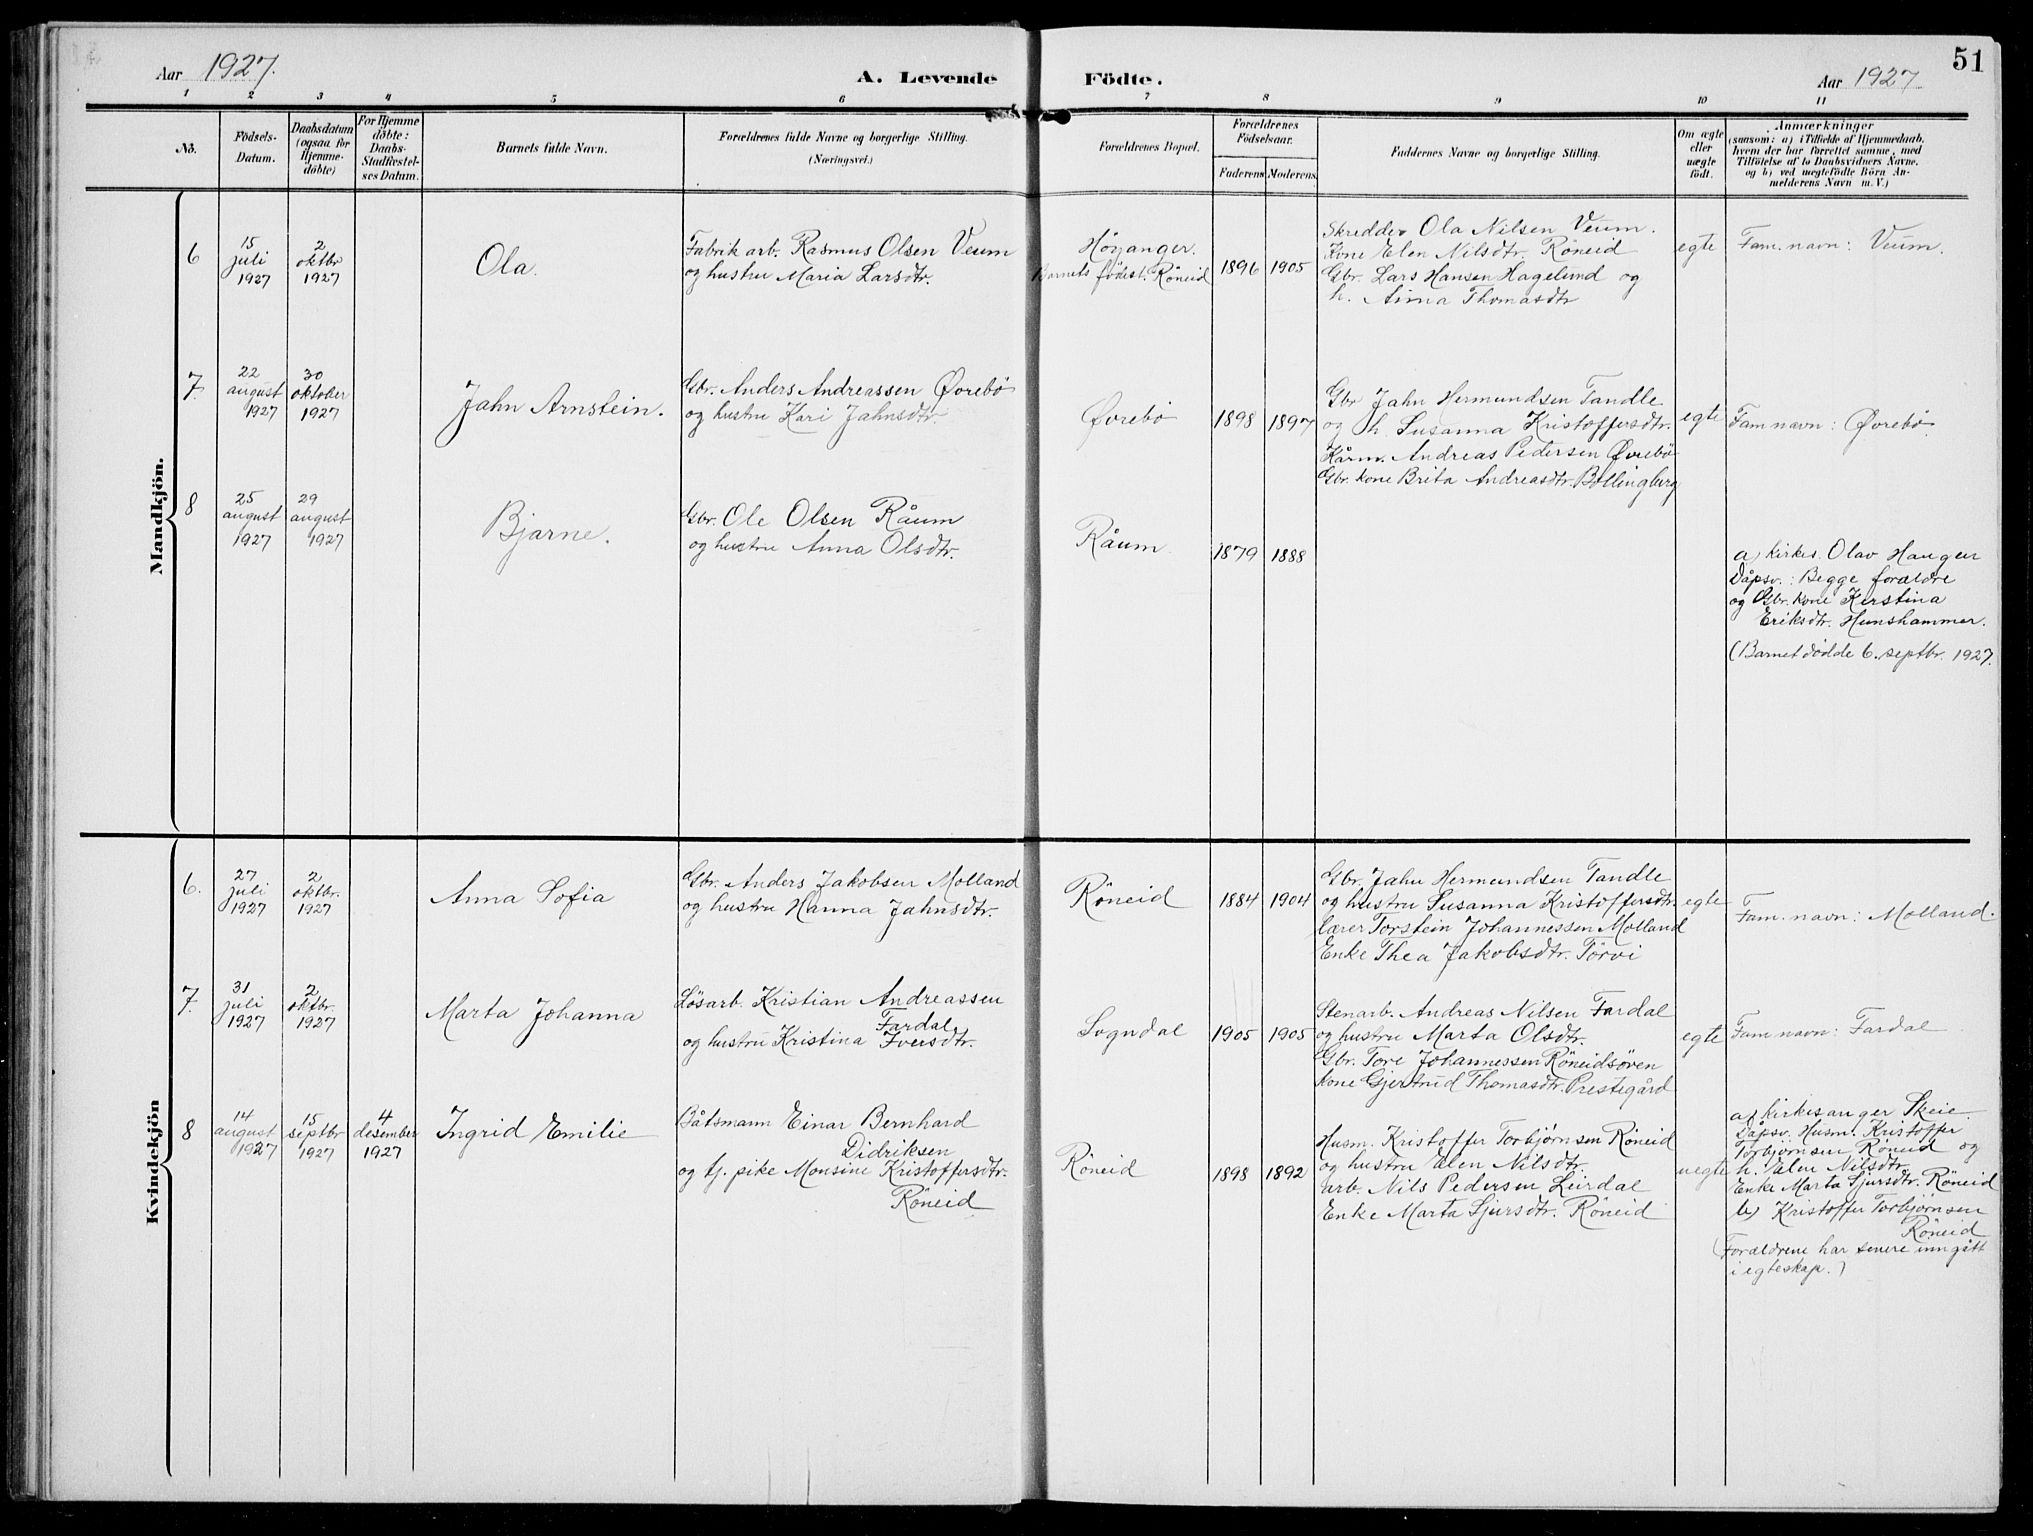 51
Aar 1927.
A. Levende Födte.
Aar 1927
1 2 3 4 5 6 7 8 9 10 11
No.
Födsels-
Datum.
Daabsdatum
(ogsaa for
Hjemme-
döbte)
For Hjemme
döbte:
Daabs-
Stadfæstel-
ses Datum.
Barnets fulde Navn.
Forældrenes fulde Navne og borgerlige Stilling.
(Næringsvei.)
Forældrenes Bopæl.
Forældrenes
Födselsaar.
Faderens Moderens
Faddernes Navne og borgerlige Stilling.
Om ægte
eller
uægte
födt.
Anmærkninger
(saasom: a) i Tilfælde af Hjemmedaab,
hvem der har forrettet samme, med
Tilföielse af to Daabsvidners Navne.
og b) ved uægtefödte Börn An-
melderens Navn m. V.)
Mandkjön.
6
15
juli
1927
2
oktbr
1927
Ola.
Fabrik arb. Rasmus Olsen Veum
og hustru Maria Larsdtr.
Høyanger.
Barnets fødest. Röneid
1896 1905
Skredder Ola Nilsen Veum.
Kone Elen Nilsdtr. Röneid
Gbr. Lars Hansen Hagelund og
h. Anna Thomasdtr
egte
Fam. navn: Veum.
7
22
august
1927
30
oktober
1927
Jahn Arnstein.
Gbr. Anders Andreassen Øvrebö
og hustru Kari Jahnsdtr.
Øvrebö
1898 1897
Gbr Jahn Hermundsen Tandle
og h. Susanna Kristoffersdtr.
Kårm. Andreas Pedersen Øvrebö
Gbr. kone Brita Andreasdtr. Bollingberg
egte
Fam navn: Øvrebö
8
25
august
1927
29
august
1927
Bjarne.
Gbr. Ole Olsen Råum
og hustru Anna Olsdtr.
Råum
1879 1888
a) kirkes. Olav Haugen
Dåpsv.: Begge forældre
og Gbr. kone Kerstina
Eriksdtr. Hunshammer.
(Barnet dødde 6. septbr. 1927.
Kvindekjön
6.
27
juli
1927
2
oktbr.
1927
Anna Sofia
Gbr. Anders Jakobsen Molland
og hustru Hanna Jahnsdtr.
Röneid
1884 1904
Gbr. Jahn Hermundsen Tandle
og hustru Susanna Kristoffersdtr.
lærer Torstein Johannessen Molland
Enke Thea Jakobsdtr. Törvi
egte
Fam. navn: Molland.
7.
31
juli
1927
2
oktbr.
1927
Marta Johanna
Løsarb. Kristian Andreassen
Fardal
og hustru Kristina Iversdtr.
Sogndal
1905 1905
Stenarb. Andreas Nilsen Fardal
og hustru Marta Olsdtr.
Gbr. Tore Johannessen Röneidsøren
kone Gjertrud Thomasdtr. Prestegård
egte
Fam navn: Fardal
8
14
august
1927
15
septbr
1927
4
desember
1927
Ingrid Emilie
Båtsmann Einar Bernhard
Didriksen
og tj. pike Monsine Kristoffersdtr.
Röneid
Röneid
1898 1892
Husm. Kristoffer Torbjørnsen Röneid
og hustru Elen Nilsdtr.
arb. Nils Pedersen Leirdal
Enke Marta Sjursdtr. Röneid
uegte
a) kirkesanger Skeie
Dåpsv. Husm. Kristoffer
Torbjørnsen Röneid og
h. Elen Nilsdtr.
Enke Marta Sjursdtr. Röneid
b) Kristoffer Torbjørnsen
Röneid
(Forældrene har senere inngått
i egteskap.)